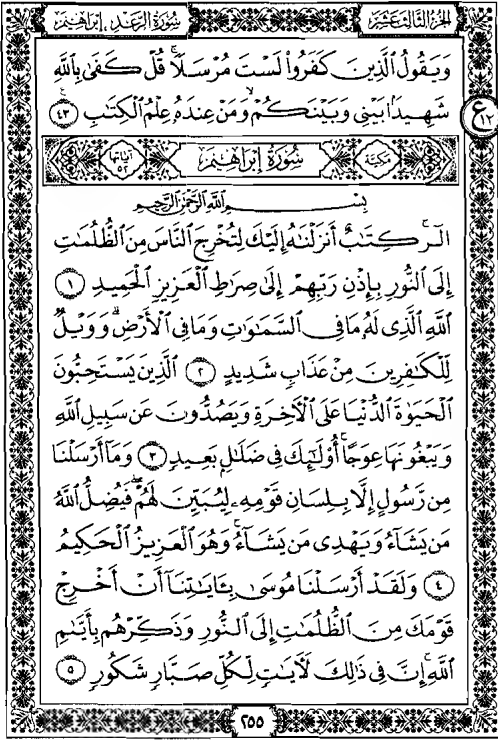 الجزء الثالث عشر
سورة الرعد . إبراهيم
وَيَقُولُ الَّذِينَ كَفَرُوا۟ لَسْتَ مُرْسَلًاۚ قُلْ كَفَىٰ بِاللَّهِ
شَهِيدًۢا بَيْنِي وَبَيْنَكُمْۙ وَمَنْ عِندَهُۥ عِلْمُ الْكِتَٰبِ ٤٣
ع ١٢
مكيّة
سُورَةُ إِبْرَاهِيمَ
آياتها ٥٢
بِسْمِ اللَّهِ الرَّحْمَٰنِ الرَّحِيمِ
الٓرۚ كِتَٰبٌ أَنزَلْنَٰهُ إِلَيْكَ لِتُخْرِجَ النَّاسَ مِنَ الظُّلُمَٰتِ
إِلَى النُّورِ بِإِذْنِ رَبِّهِمْ إِلَىٰ صِرَٰطِ الْعَزِيزِ الْحَمِيدِ ١
اللَّهِ الَّذِي لَهُۥ مَا فِي السَّمَٰوَٰتِ وَمَا فِي الْأَرْضِۗ وَوَيْلٌ
لِّلْكَٰفِرِينَ مِنْ عَذَابٍ شَدِيدٍ ٢ الَّذِينَ يَسْتَحِبُّونَ
الْحَيَوٰةَ الدُّنْيَا عَلَى الْآخِرَةِ وَيَصُدُّونَ عَن سَبِيلِ اللَّهِ
وَيَبْغُونَهَا عِوَجًاۚ أُو۟لَٰٓئِكَ فِي ضَلَٰلٍۭ بَعِيدٍ ٣ وَمَآ أَرْسَلْنَا
مِن رَّسُولٍ إِلَّا بِلِسَانِ قَوْمِهِۦ لِيُبَيِّنَ لَهُمْۖ فَيُضِلُّ اللَّهُ
مَن يَشَآءُ وَيَهْدِي مَن يَشَآءُۚ وَهُوَ الْعَزِيزُ الْحَكِيمُ
٤ وَلَقَدْ أَرْسَلْنَا مُوسَىٰ بِـَٔايَٰتِنَآ أَنْ أَخْرِجْ
قَوْمَكَ مِنَ الظُّلُمَٰتِ إِلَى النُّورِ وَذَكِّرْهُم بِأَيَّىٰمِ
اللَّهِۚ إِنَّ فِي ذَٰلِكَ لَآيَٰتٍ لِّكُلِّ صَبَّارٍ شَكُورٍ ٥
٢٥٥